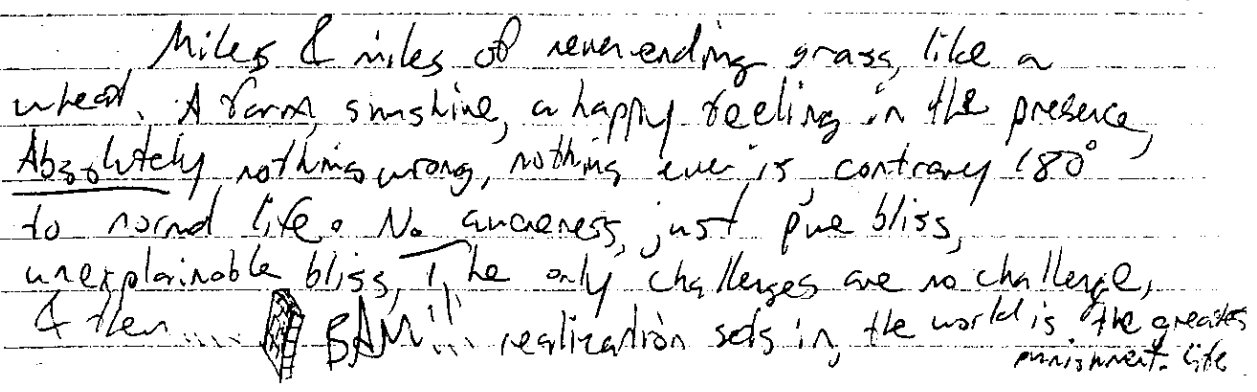 Miles & miles of neverending grass, like a
wheat. A farm, sunshine, a happy feeling in the presence,
Absolutely nothing wrong, nothing ever is, contrary 180°
to normal life. No awareness, just pure bliss,
unexplainable bliss, The only challenges are no challenge,
& then.... BAM!!... realization sets in, the world is the greates
punishment. life